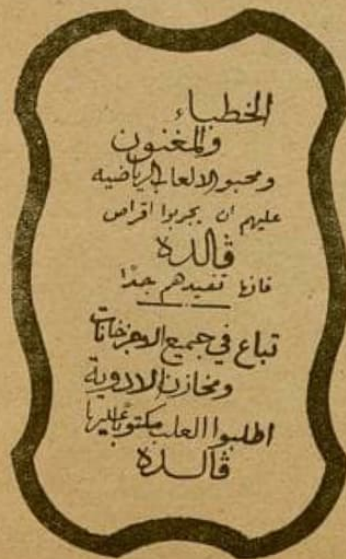 الخطباء
والمغنون
ومحبو الالعاب الرياضيه
عليهم ان يجربوا اقراص
ڤالدة
فانها تفيدهم جدًا
تباع في جميع الاجزخانات
ومخازن الادوية
اطلبوا العلب مكتوبًا عليها
ڤالدة